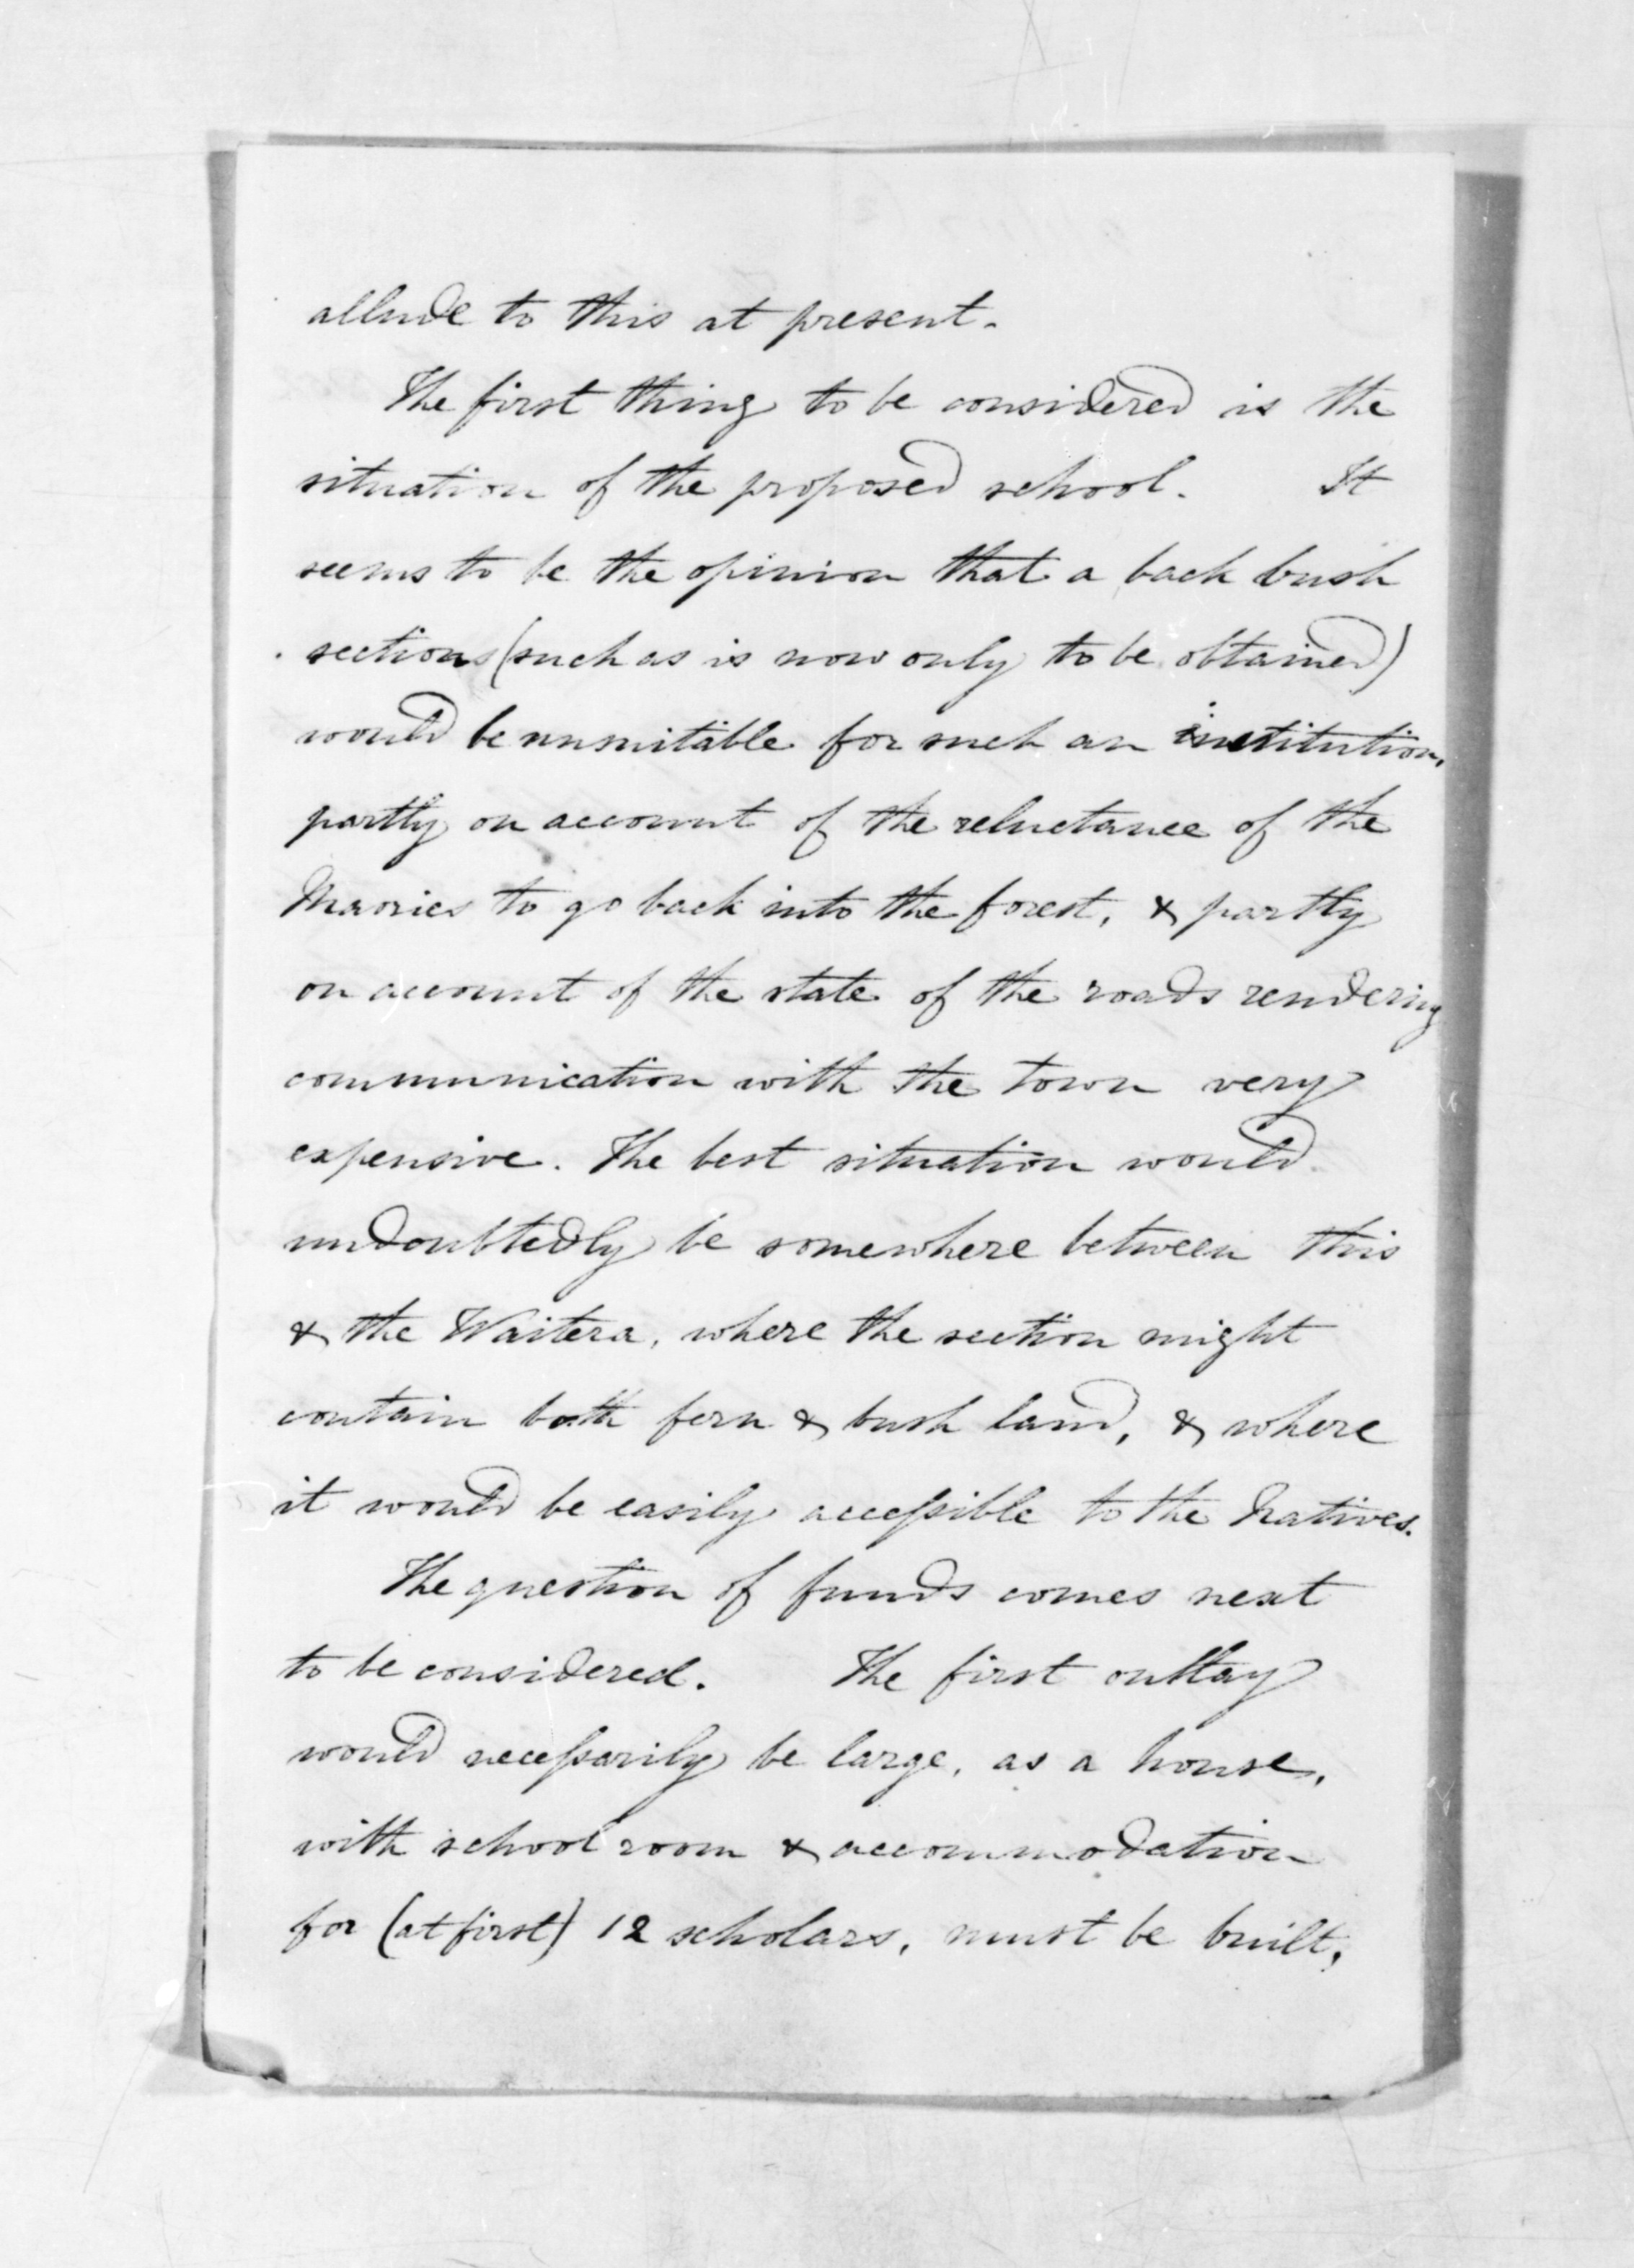 allude to this at present.
The first thing to be considered is the
situation of the proposed school. It
seems to be the opinion that a back bush
sections (such as is now only to be obtained)
would be unsuitable for such an institution,
partly on account of the reluctance of the
Maories to go back into the forest, & partly
on account of the state of the roads rendering
communication with the town very
expensive. The best situation would
undoubtedly be somewhere between this
& the Waitera, where the section might
contain both fern & bush land, & where
it would be easily accessible to the Natives.
The question of funds comes next
to be considered. The first outlay
would necessarily be large, as a house,
with school room & accommodation
for (at first) 12 scholars, must be built,